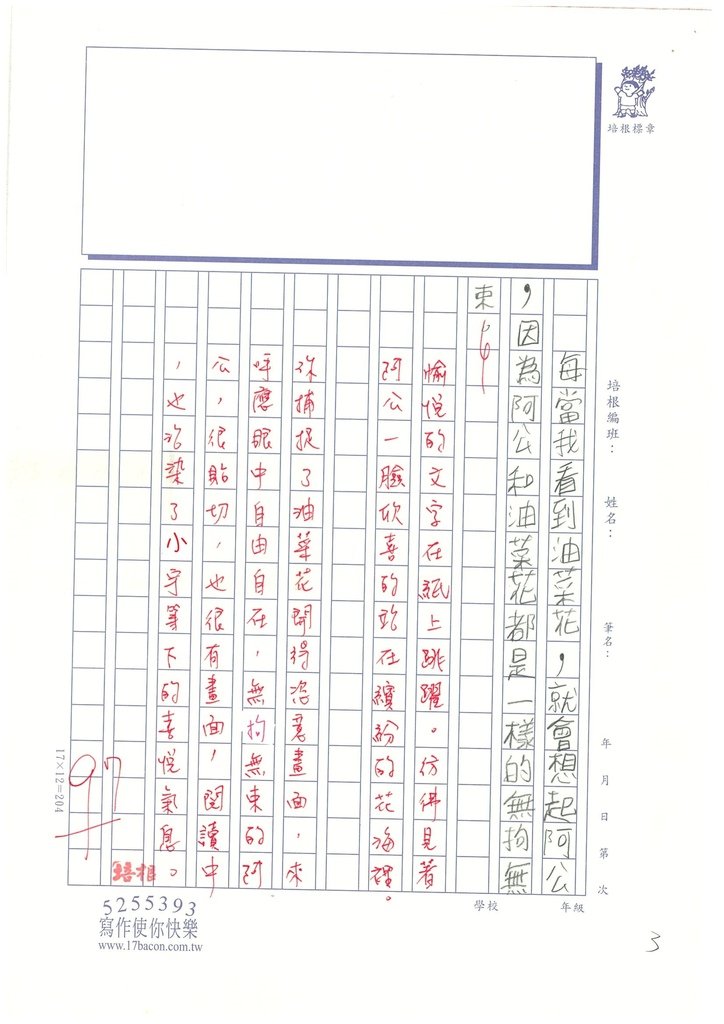 培根標章
培根編班：
姓名：
筆名：
年 月 日 第 次
年級
學校
每當我看到油菜花，就會想起阿公
，因為阿公和油菜花都是一樣的無拘無
束
愉悅的文字在紙上跳躍。彷彿見著
阿公一臉欣喜的站在繽紛的花海裡。
你捕捉了油菜花開得恣意畫面，來
呼應眼中自由自在，無拘無束的阿
公，很貼切，也很有畫面，閱讀中
，也沾染了小宇筆下的喜悅氣息。
97
培根
17×12=204
5255393
寫作使你快樂
www.17bacon.com.tw
3